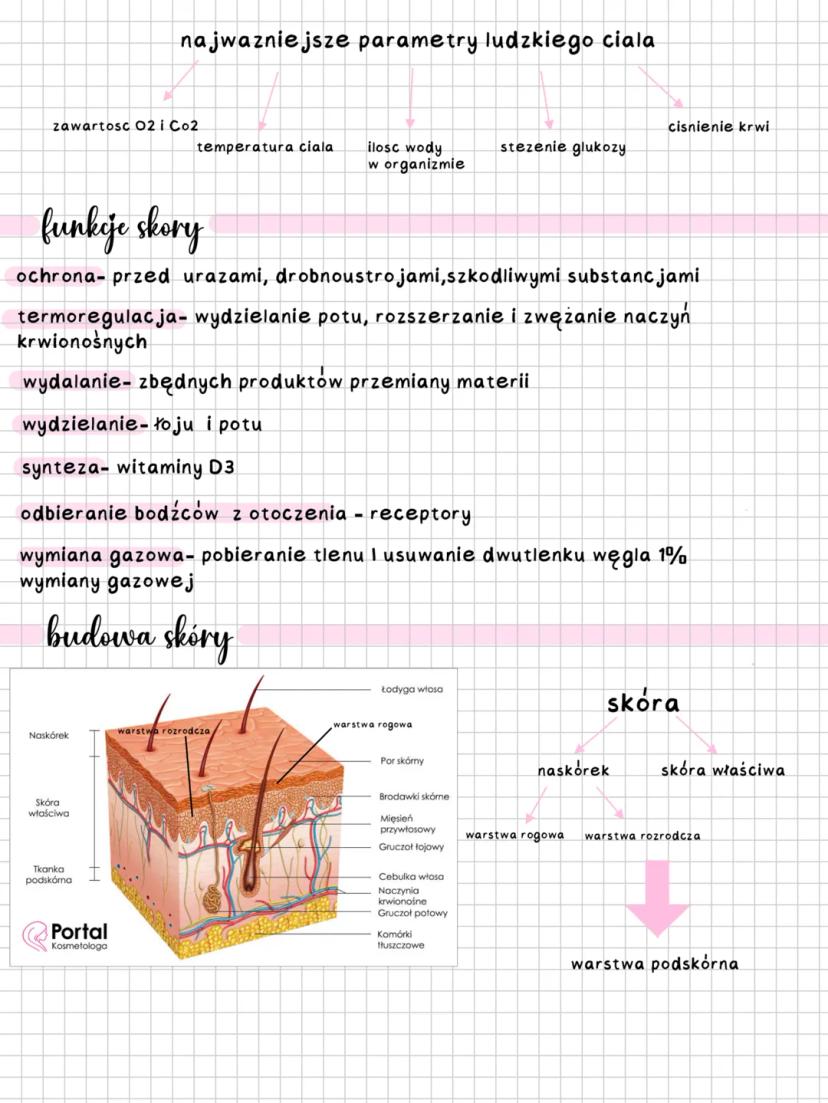 najwazniejsze parametry ludzkiego ciala
zawartosc O2 i Co2
temperatura ciala
ilosc wody
w organizmie
stezenie glukozy
cisnienie krwi
funkcje skory
ochrona- przed urazami, drobnoustrojami,szkodliwymi substancjami
termoregulacja- wydzielanie potu, rozszerzanie i zwężanie naczyń
krwionośnych
wydalanie- zbędnych produktów przemiany materii
wydzielanie- łoju i potu
synteza- witaminy D3
odbieranie bodźców z otoczenia - receptory
wymiana gazowa- pobieranie tlenu I usuwanie dwutlenku węgla 1%
wymiany gazowej
budowa skóry
Łodyga włosa
warstwa rogowa
warstwa rozrodcza
Naskórek
Por skórny
Brodawki skórne
Skóra
właściwa
Mięsień
przywłosowy
Gruczoł łojowy
Tkanka
podskórna
Cebulka włosa
Naczynia
krwionośne
Gruczoł potowy
Komórki
tłuszczowe
Portal
Kosmetologa
skóra
naskórek
skóra właściwa
warstwa rogowa
warstwa rozrodcza
warstwa podskórna